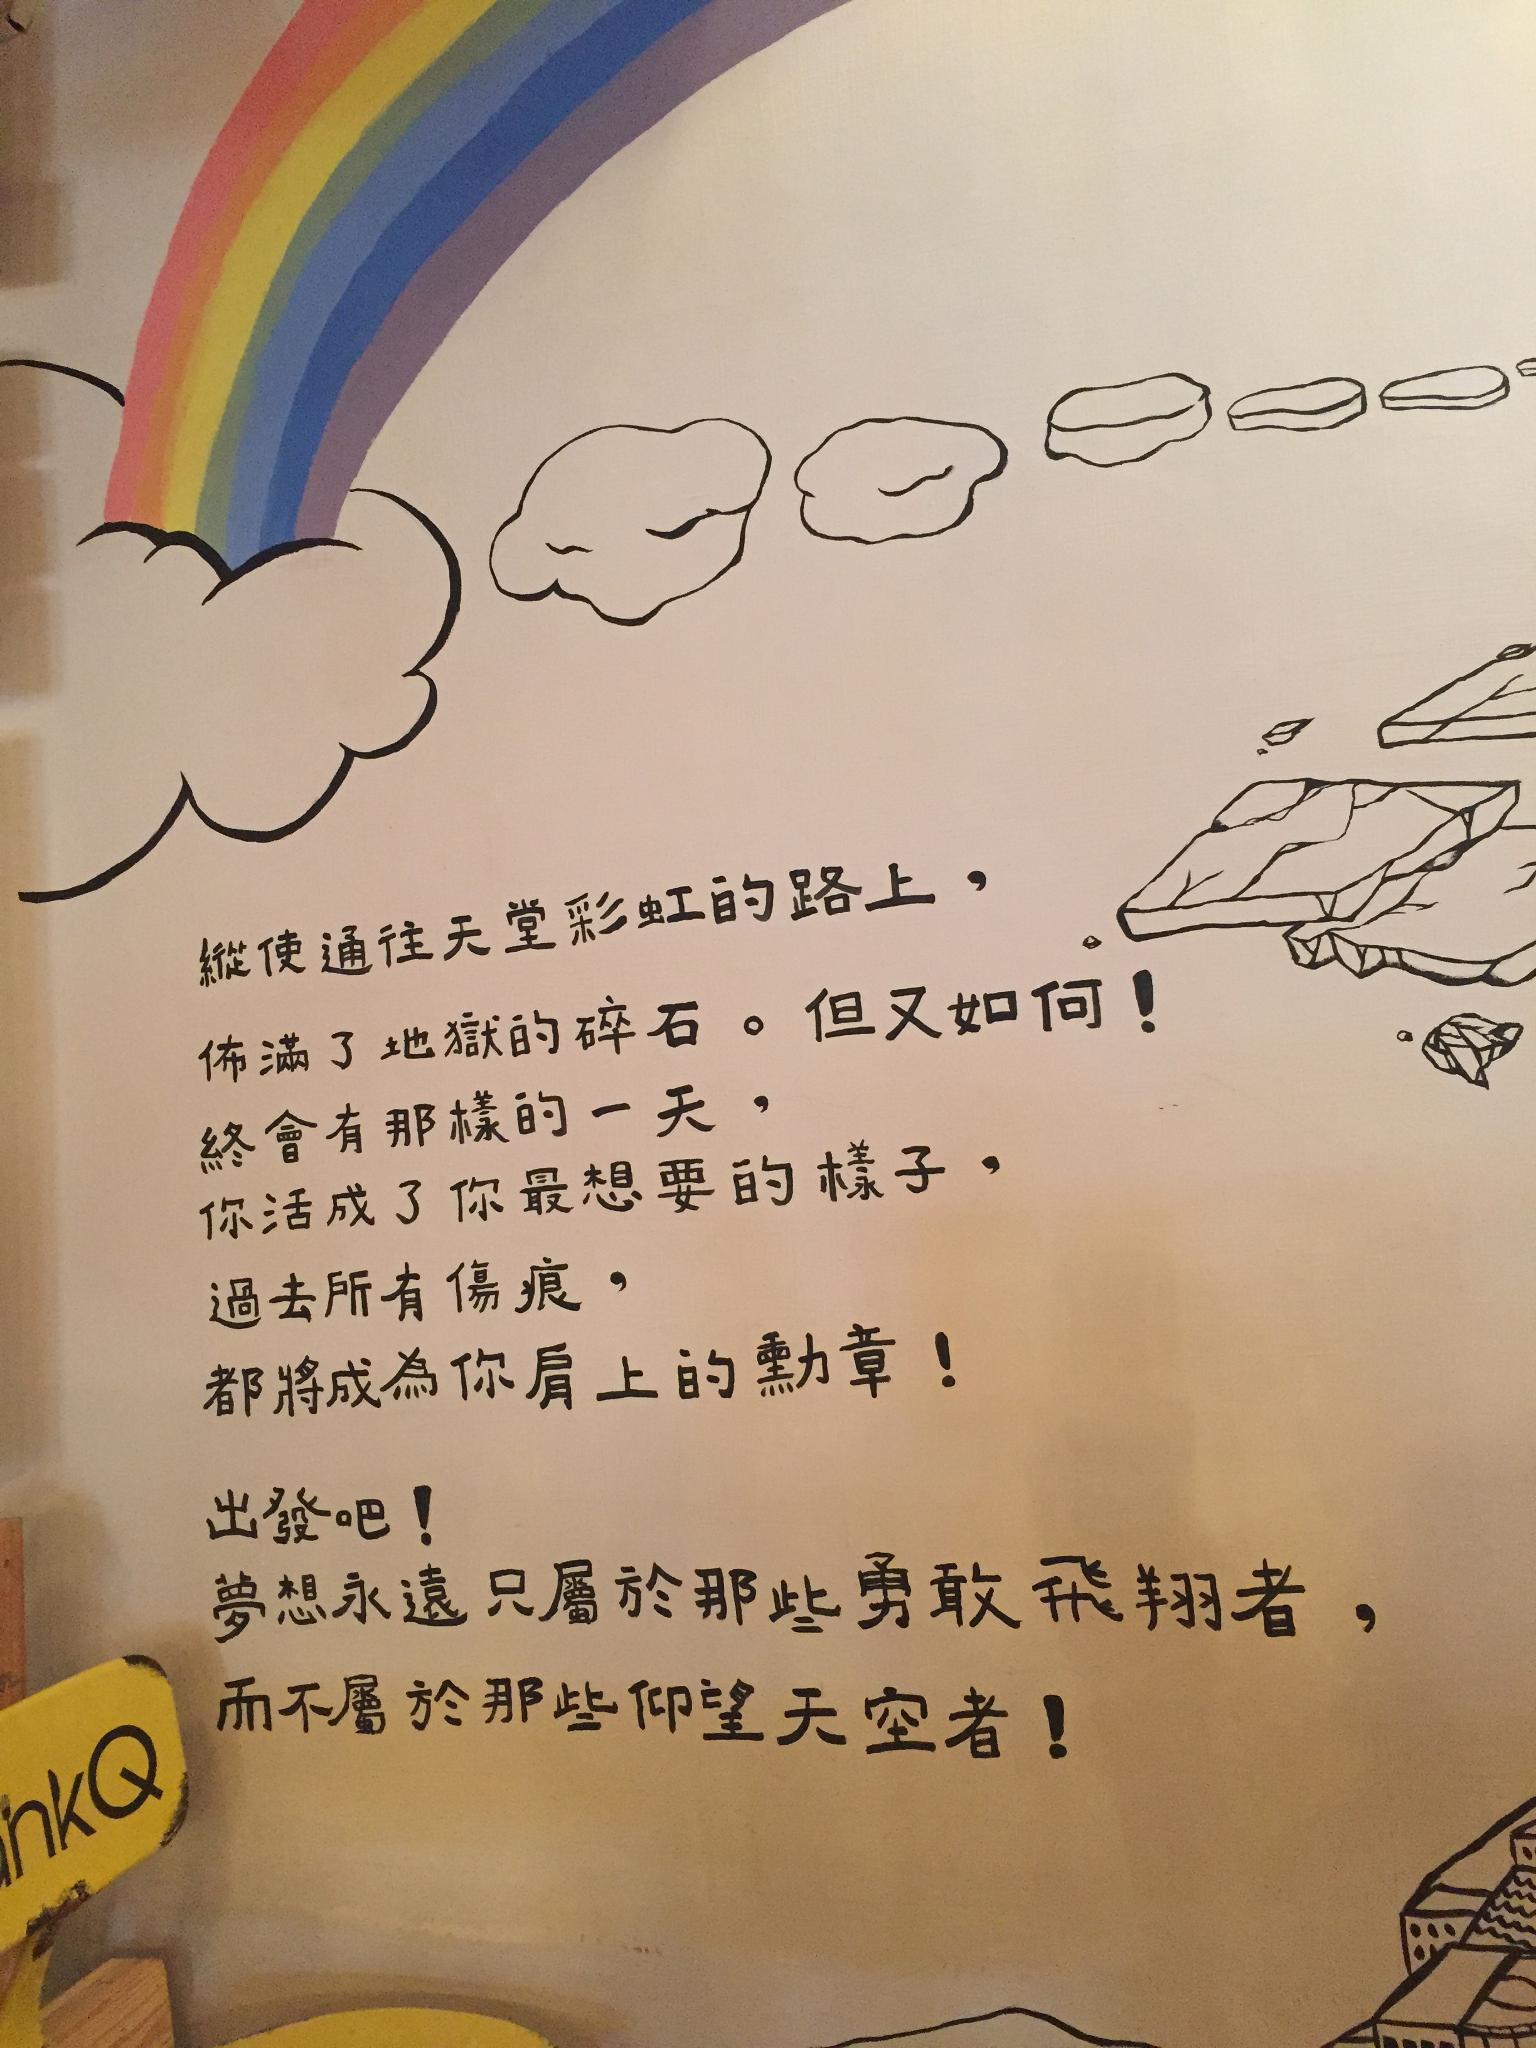 縱使通往天堂彩虹的路上，
佈滿了地獄的碎石。但又如何！
終會有那樣的一天，
你活成了你最想要的樣子，
過去所有傷痕，
都將成為你肩上的勳章！
出發吧！
夢想永遠只屬於那些勇敢飛翔者，
而不屬於那些仰望天空者！
ankQ